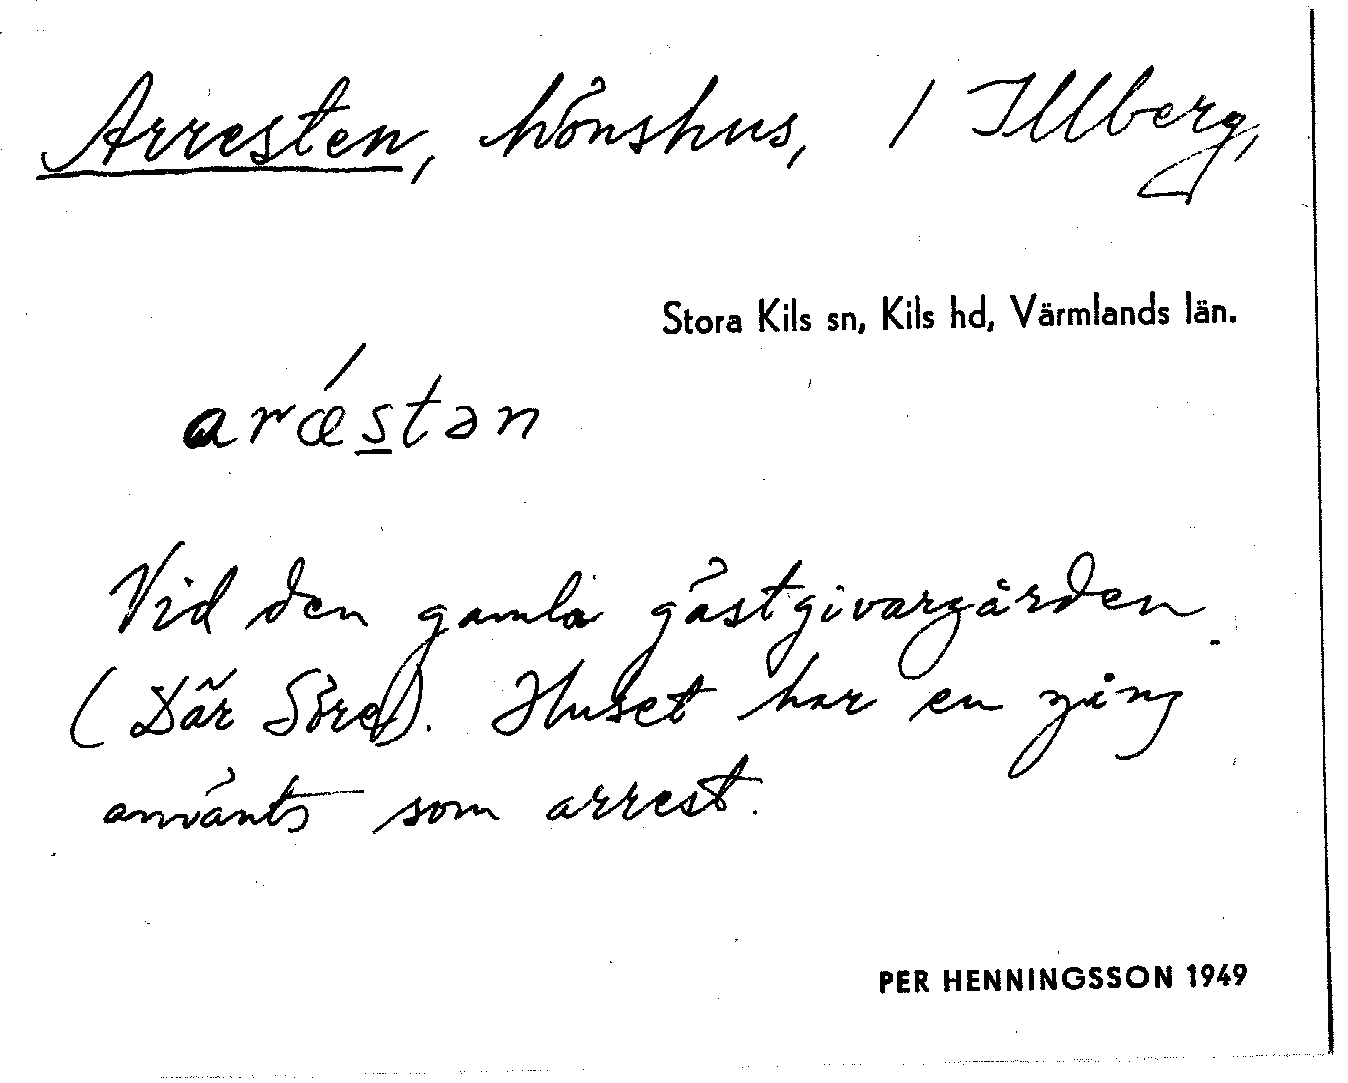 Arresten, hönshus, / Illberg,
Stora Kils sn, Kils hd, Värmlands län.
aræ´stən
Vid den gamla gästgivargården
(Där Söre). Huset har en gång
använts som arrest.
PER HENNINGSSON 1949